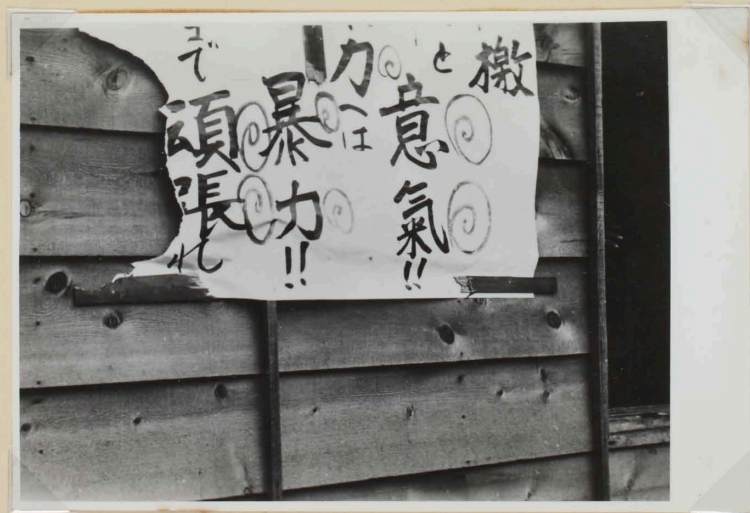 檄
と
意氣!!
力へは
暴力!!
で
頑張れ